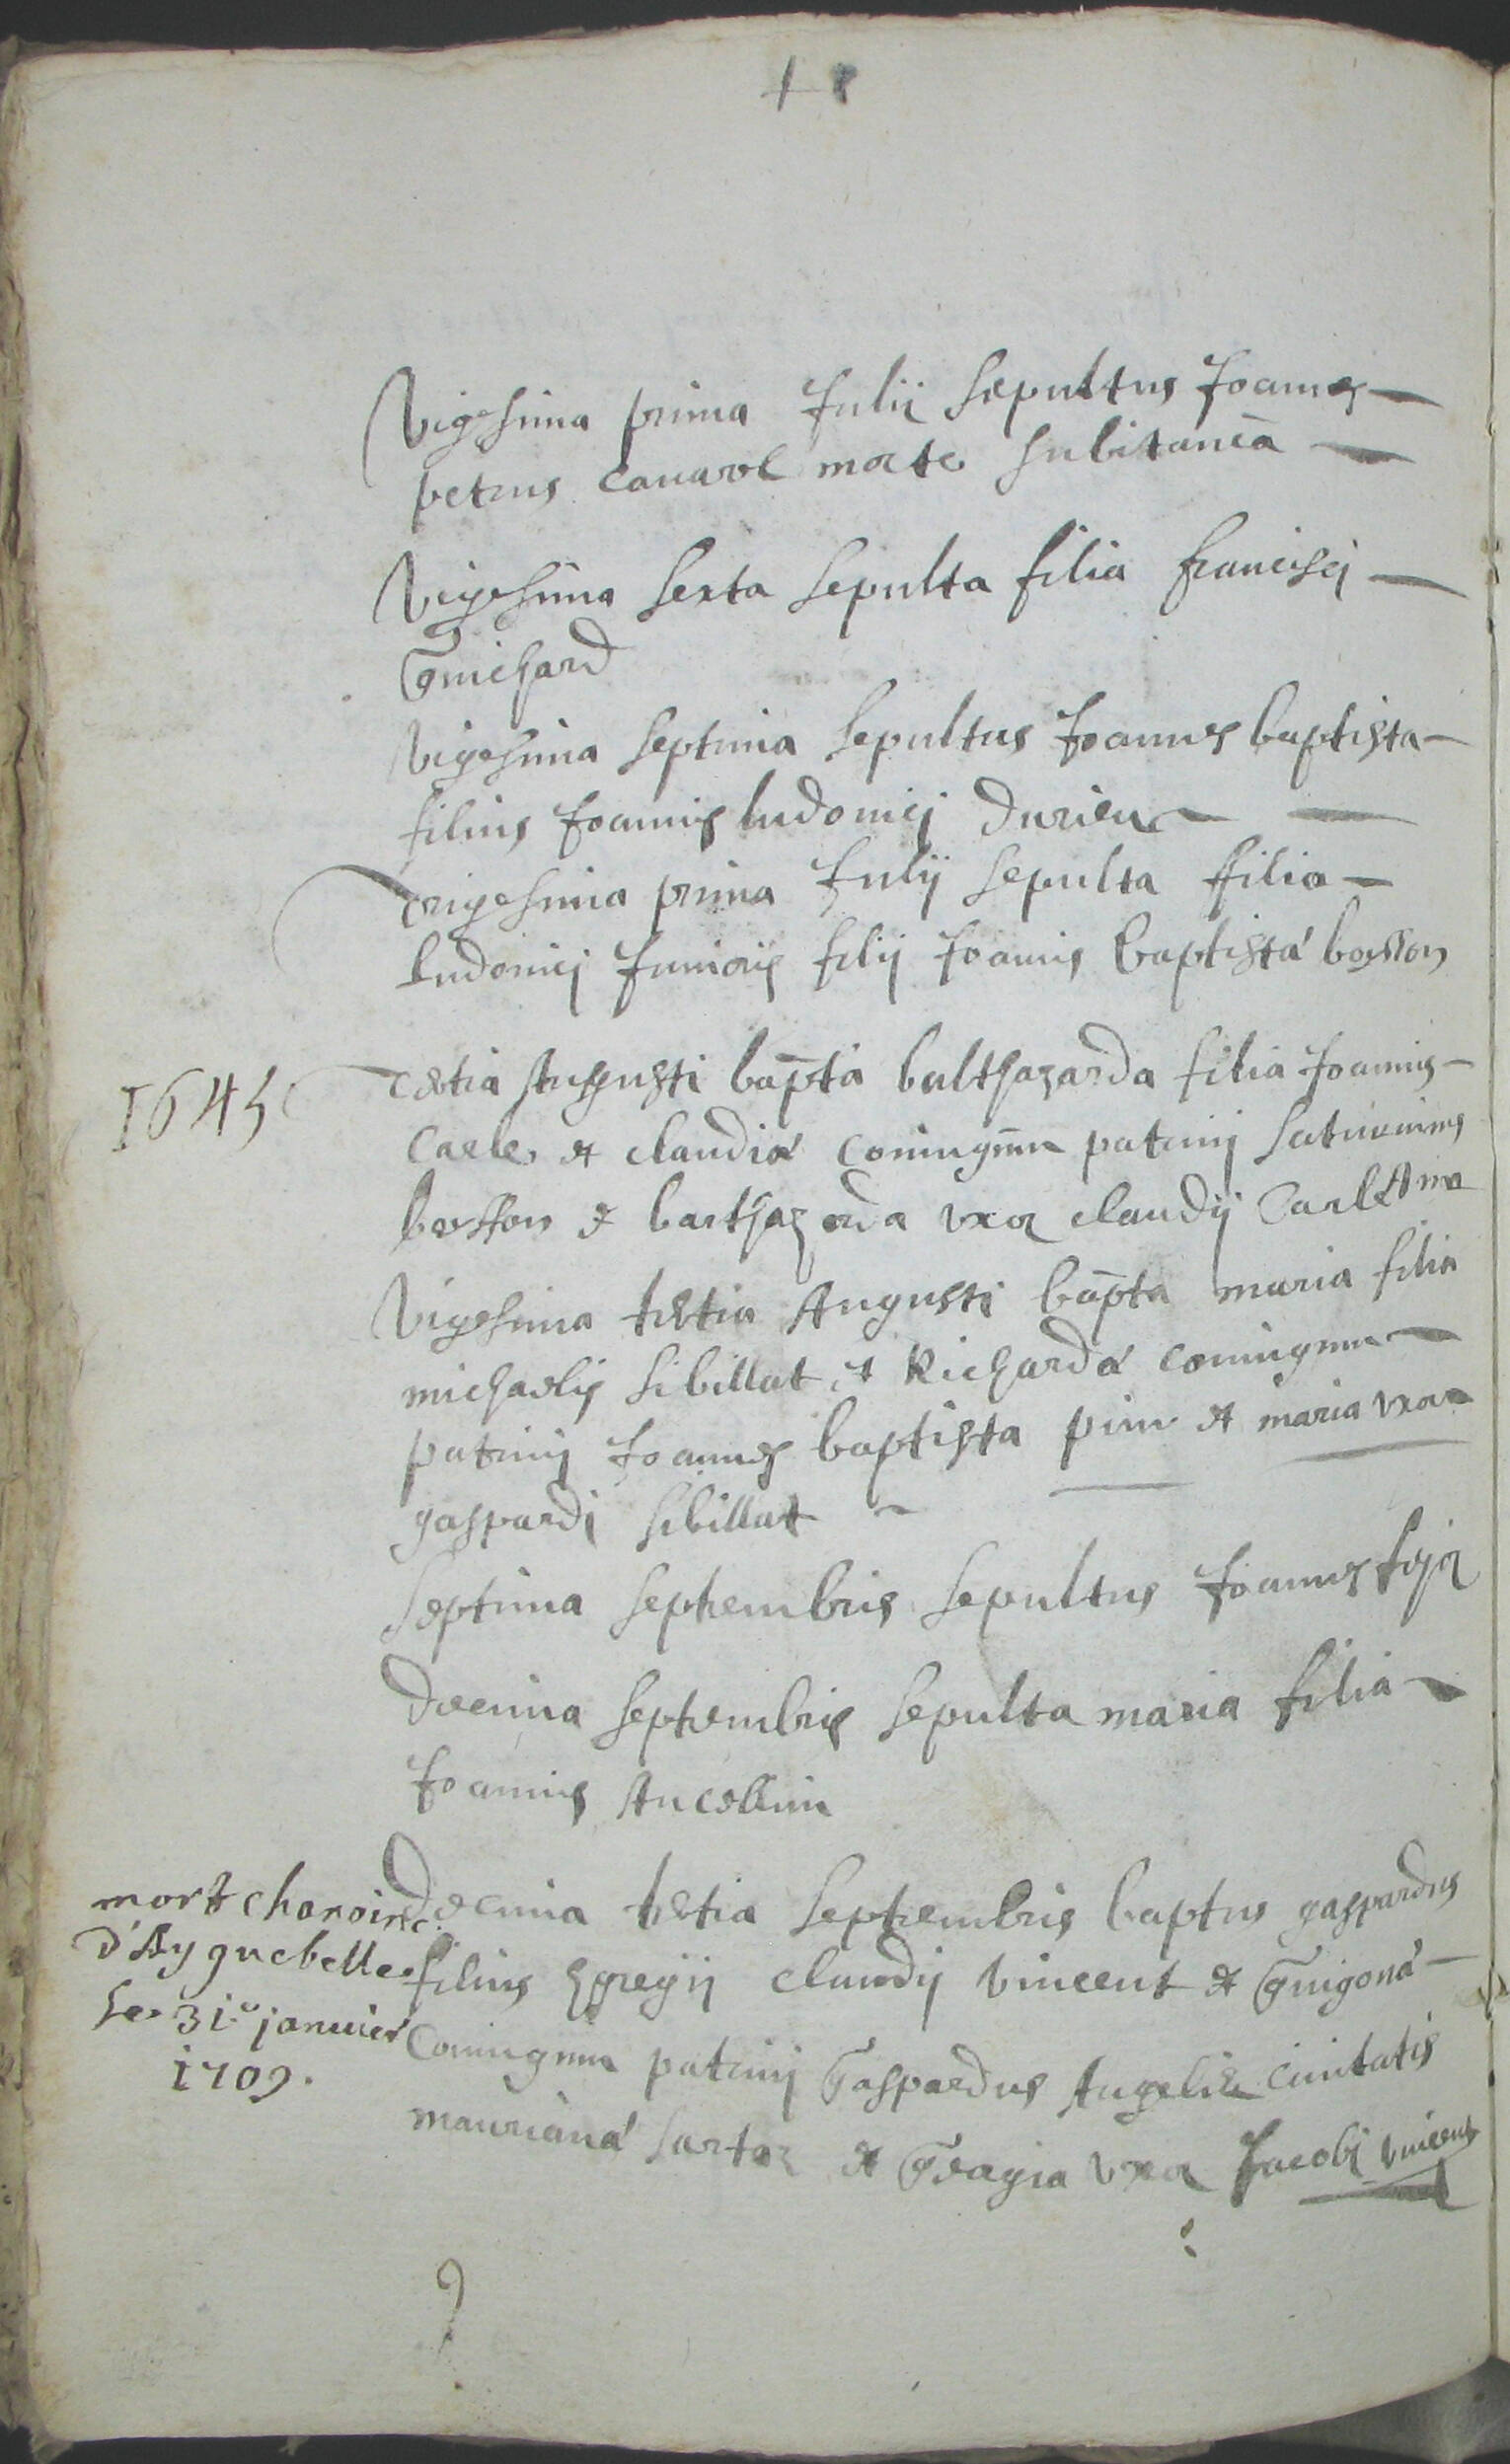 Vigesima prima Julii sepultus Joannes
petrus Cavarl morte subitanea
Vigesima sexta sepulta filia francisci
Guichard
Vigesima septima sepultus Joannes baptista
filius Joannis ludovici Durieu
Trigesima prima Julij sepulta filia
ludovici Junioris filij Joannis baptistæ bosson
1645
Tertia Augusti bapta balthazarda filia Joannis
Carle et claudiæ coniugum patrinj saturninus
bosson et barthazarda uxor claudij Carle
Vigesima tertia Augusti bapta maria filia
michaelis sibillat et Richardæ coniugum
patrinj Joannes baptista et maria uxor
gaspardi sibillat
Septima septembris sepultus Joannes
Decima septembris sepulta maria filia
Joannis Ancellin
mort chanoine
d'Ayguebelle
le 31e janvier
1709.
Decima tertia septembris baptus gaspardus
filius Egregij claudij vincent et Guigonæ
Coniugum patrinj Gaspardus Angelier civitatis
maurianæ sartor et uxor Jacobj vincent